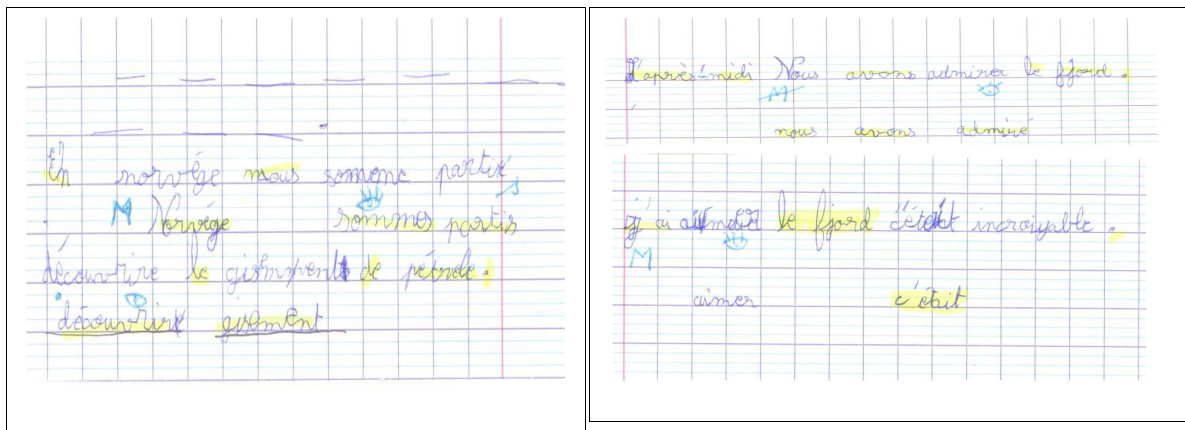 En norvège nous somenc partir
M Norvège sommes partis
découvrire le de pétrole.
découvrire gisement
L'après-midi Nous avons admirer le fjord.
M
nous avons admiré
j'ai le fjord c'était incroiyable.
M
aimer c'était